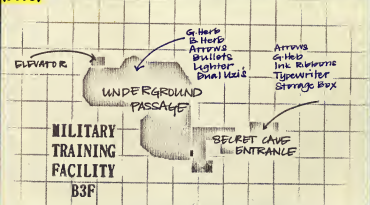 G. Herb
B. Herb
Arrows
Bullets
Lighter
Dual Uzi's
Arrows
G. Heb
Ink Ribbons
Typewriter
Storage Box
ELEVATOR
UNDERGROUND
PASSAGE
SECRET CAVE
ENTRANCE
MILITARY
TRAINING
FACILITY
B3F